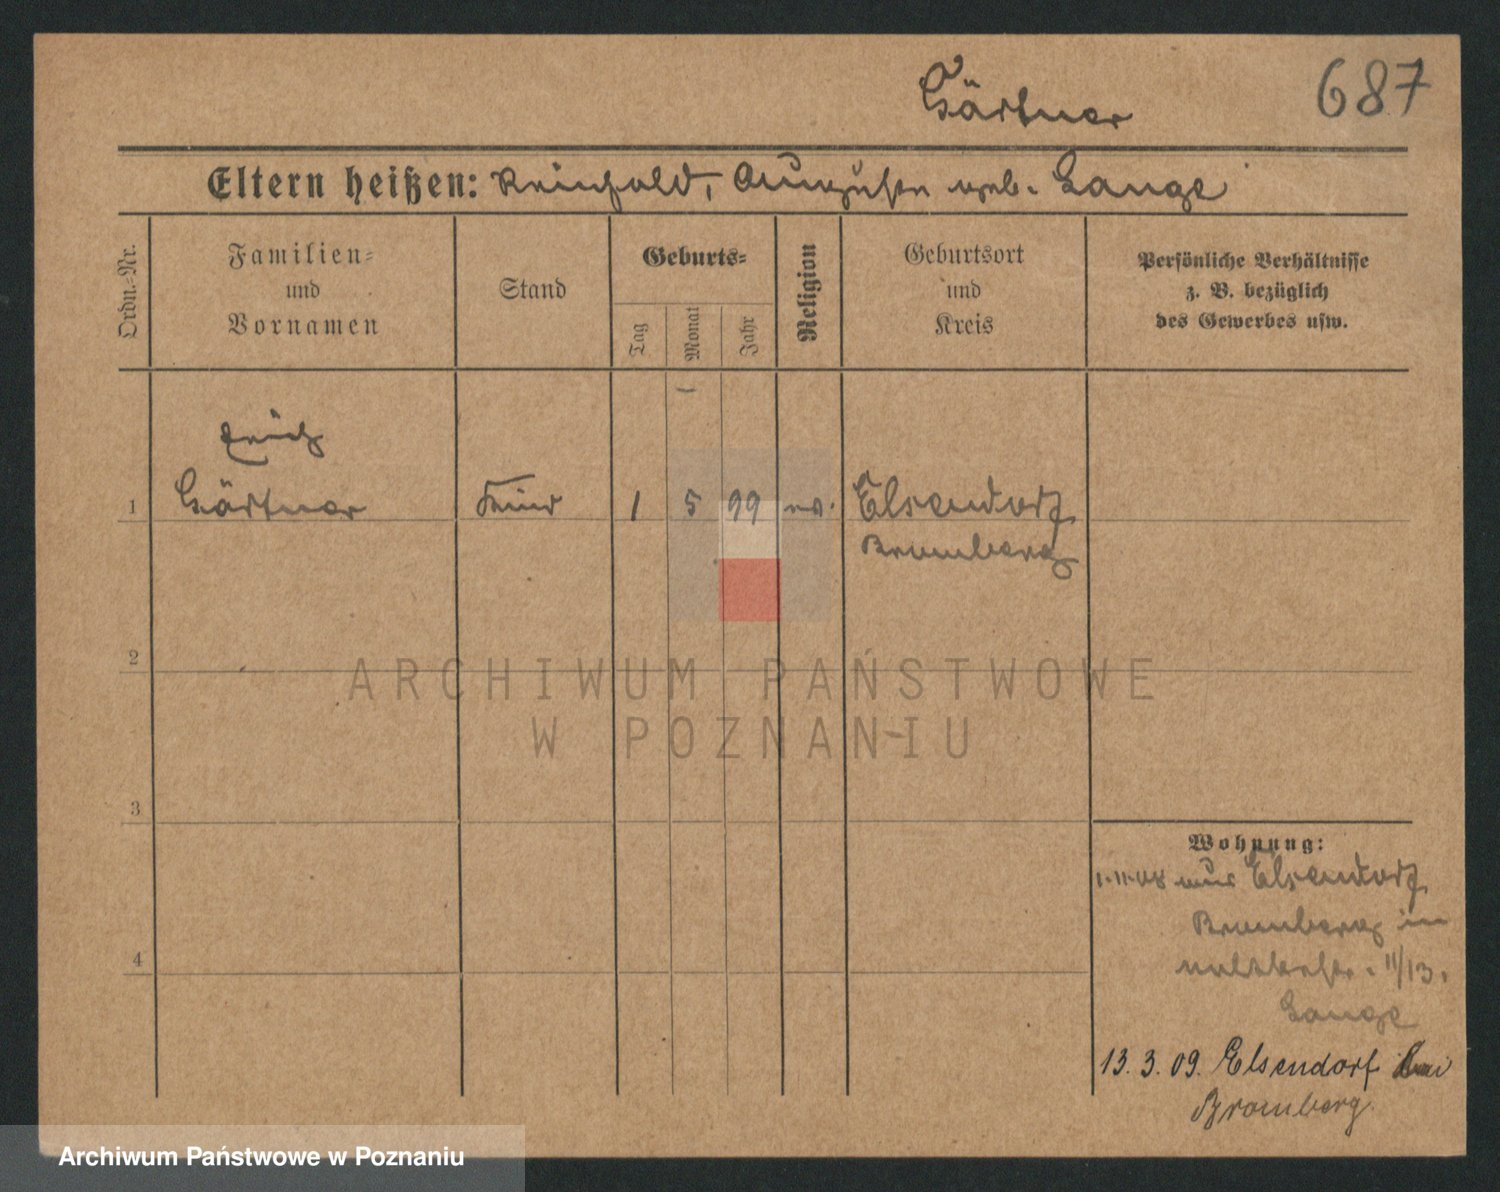 Gärtner
687
Eltern heißen: Reinhold, Auguste geb. Lange
Ordn.-Nr.
Familien-
und
Vornamen
Stand
Geburts-
Tag
Monat
Jahr
Religion
Geburtsort
und
Kreis
Persönliche Verhältnisse
z. B. bezüglich
des Gewerbes usw.
Erich
1 Gärtner Kind 1 5 99 ev. Elsendorf
Bromberg
2
3
4
Wohnung:
1.11.08 Elsendorf
Bromberg in
11/13.
Lange
13. 3. 09. Elsendorf bei
Bromberg.
ARCHIWUM PAŃSTWOWE
W POZNANIU
Archiwum Państwowe w Poznaniu